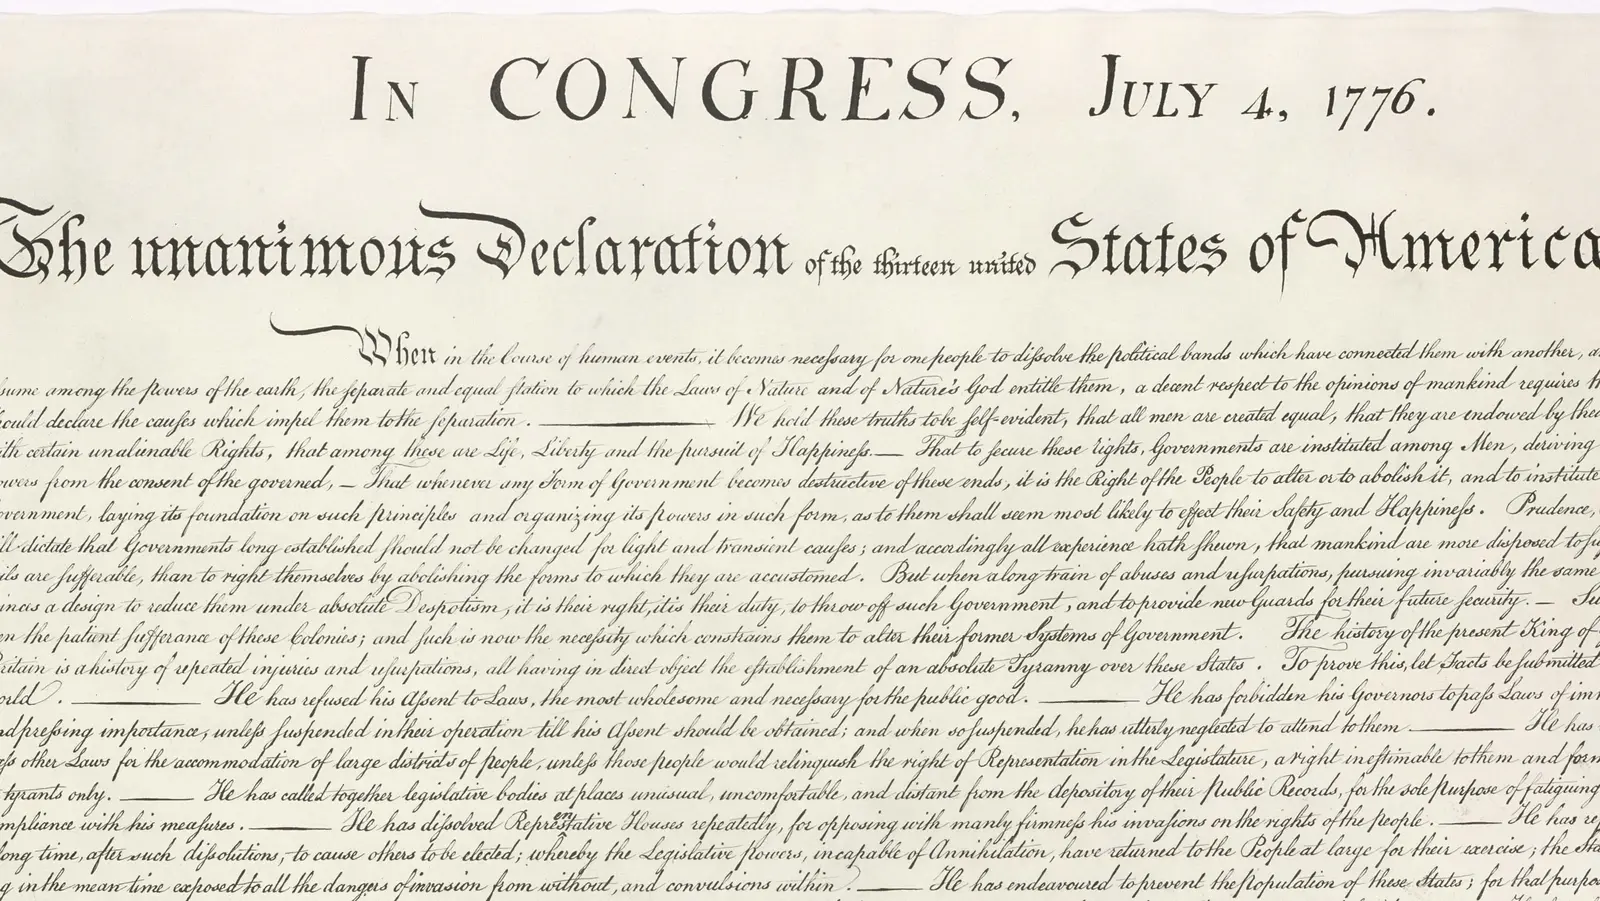 In CONGRESS, July 4, 1776.
The unanimous Declaration of the thirteen united States of America
When in the Course of human events, it becomes necessary for one people to dissolve the political bands which have connected them with another, a
sume among the powers of the earth, the separate and equal station to which the Laws of Nature and of Nature's God entitle them, a decent respect to the opinions of mankind requires th
ould declare the causes which impel them to the separation. ——— We hold these truths to be self-evident, that all men are created equal, that they are endowed by thei
ith certain unalienable Rights, that among these are Life, Liberty and the pursuit of Happiness.— That to secure these rights, Governments are instituted among Men, deriving
owers from the consent of the governed, — That whenever any Form of Government becomes destructive of these ends, it is the Right of the People to alter or to abolish it, and to institute
overnment, laying its foundation on such principles and organizing its powers in such form, as to them shall seem most likely to effect their Safety and Happiness. Prudence,
ill dictate that Governments long established should not be changed for light and transient causes; and accordingly all experience hath shewn, that mankind are more disposed to su
ils are sufferable, than to right themselves by abolishing the forms to which they are accustomed. But when a long train of abuses and usurpations, pursuing invariably the same
inces a design to reduce them under absolute Despotism, it is their right, it is their duty, to throw off such Government, and to provide new Guards for their future security. — Su
en the patient sufferance of these Colonies; and such is now the necessity which constrains them to alter their former Systems of Government. The history of the present King of
Britain is a history of repeated injuries and usurpations, all having in direct object the establishment of an absolute Tyranny over these States. To prove this, let Facts be submitted
orld. ——— He has refused his Assent to Laws, the most wholesome and necessary for the public good. ——— He has forbidden his Governors to pass Laws of imm
nd pressing importance, unless suspended in their operation till his Assent should be obtained; and when so suspended, he has utterly neglected to attend to them ——— He has
ss other Laws for the accommodation of large districts of people, unless those people would relinquish the right of Representation in the Legislature, a right inestimable to them and form
tyrants only. ——— He has called together legislative bodies at places unusual, uncomfortable, and distant from the depository of their Public Records, for the sole purpose of fatiguing
mpliance with his measures. ——— He has dissolved Representative Houses repeatedly, for opposing with manly firmness his invasions on the rights of the people. ——— He has re
long time, after such dissolutions, to cause others to be elected; whereby the Legislative powers, incapable of Annihilation, have returned to the People at large for their exercise; the Sta
g in the mean time exposed to all the dangers of invasion from without, and convulsions within. ——— He has endeavoured to prevent the population of these States; for that purpos